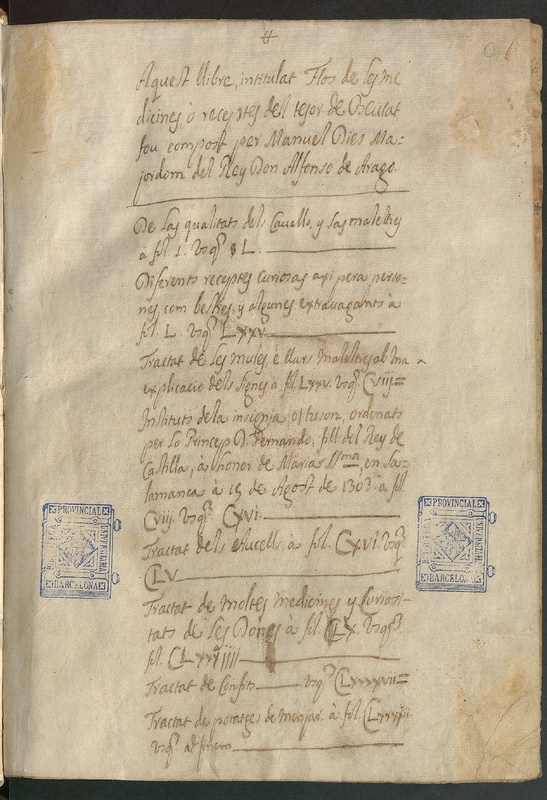 Aquest llibre, intitulat Flos de les me
dicines, o receptes del tesor de Beutat
fou compost per Manuel Dies Ma:
jordom del Rey Don Alfonso de Arago.
De las qualitats dels Cavalls, y sas malelties
à fol. 1. usq. L.
Diferents receptes curiosas axi pera perso=
nes, com besties, y algunes extravagants à
fol. L. usq. Lxxv.
Tractat de les mules, e llurs malelties ab la
explicacio dels signes à fol Lxxv. usq. Cviij.=
Instituts de la insignia o tuson, ordenats
per lo Princep D. Fernando, fill del Rey de
Castilla, à honor de Maria SSma, en Sa=
lamanca à 15 de Agost de 1303. à fol
Cviij. usq. Cxvi.
Tractat dels Aucells, à fol. Cxvi. usq.
CLV
Tractat de moltes medicines y curiosi-
tats de les Dones à fol. CLX. usq.
fol. CLxxiiii
Tractat de Confits usq. CLxxxxvii=
Tractat de potatges de menjar. à fol
usq. ad finem.
PROVINCIAL
UNIVERSITARIA
BIBLIOTECA
BARCELONA
PROVINCIAL
UNIVERSITARIA
BIBLIOTECA
BARCELONA